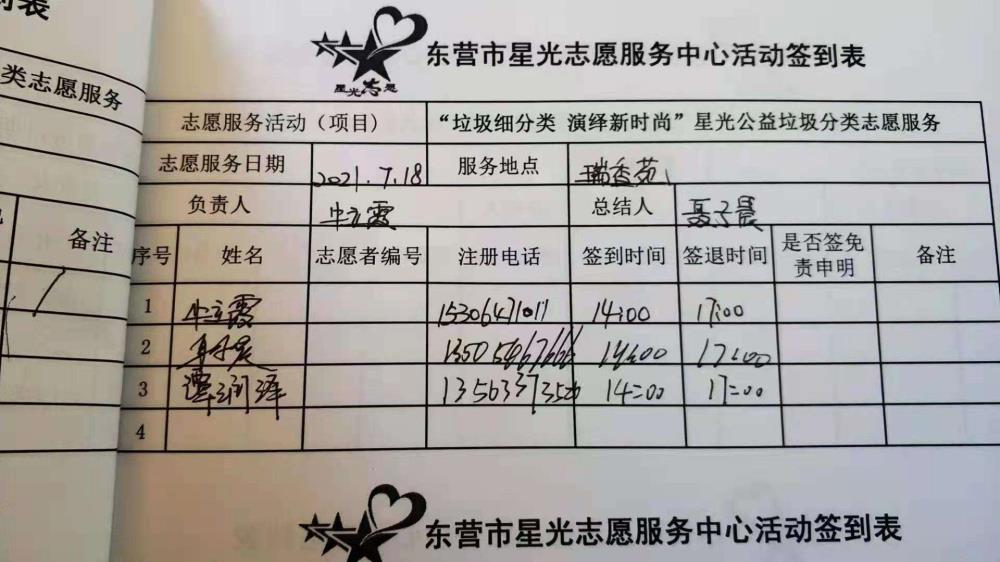 到表
类志愿服务
备注
星光志愿
东营市星光志愿服务中心活动签到表
志愿服务活动（项目） “垃圾细分类 演绎新时尚”星光公益垃圾分类志愿服务
志愿服务日期 2021.7.18 服务地点 瑞香苑
负责人 牛立霞 总结人 聂子晨
序号 姓名 志愿者编号 注册电话 签到时间 签退时间 是否签免责申明 备注
1 牛立霞 15306471011 14:00 17:00
2 14:00 17:00
3 谭润泽 14:00 17:00
4
东营市星光志愿服务中心活动签到表